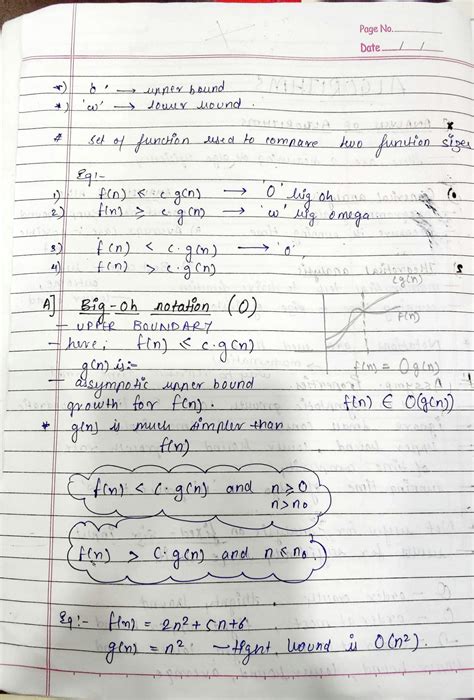 Page No.
Date / /
*) 'o' → upper bound
*) 'ω' → lower bound.
# set of function used to compare two function sizes
Eg:-
1) f(n) ≤ c g(n) → 'O' big oh
2) f(n) ≥ c g(n) → 'ω' big omega
3) f(n) < c·g(n) → 'o'
4) f(n) > c·g(n)
A] Big-Oh notation (O)
- UPPER BOUNDARY
- here, f(n) ≤ c·g(n)
cg(n)
f(n)
g(n) is:-
f(n) = Og(n)
- assymptotic upper bound
growth for f(n).
f(n) ∈ O(g(n))
* g(n) is much simpler than
f(n)
f(n) < c·g(n) and n ≥ 0
n > n₀
f(n) > c·g(n) and n < n₀
Eg:- f(n) = 2n² + 5n + 6
g(n) = n² - tight bound is O(n²).